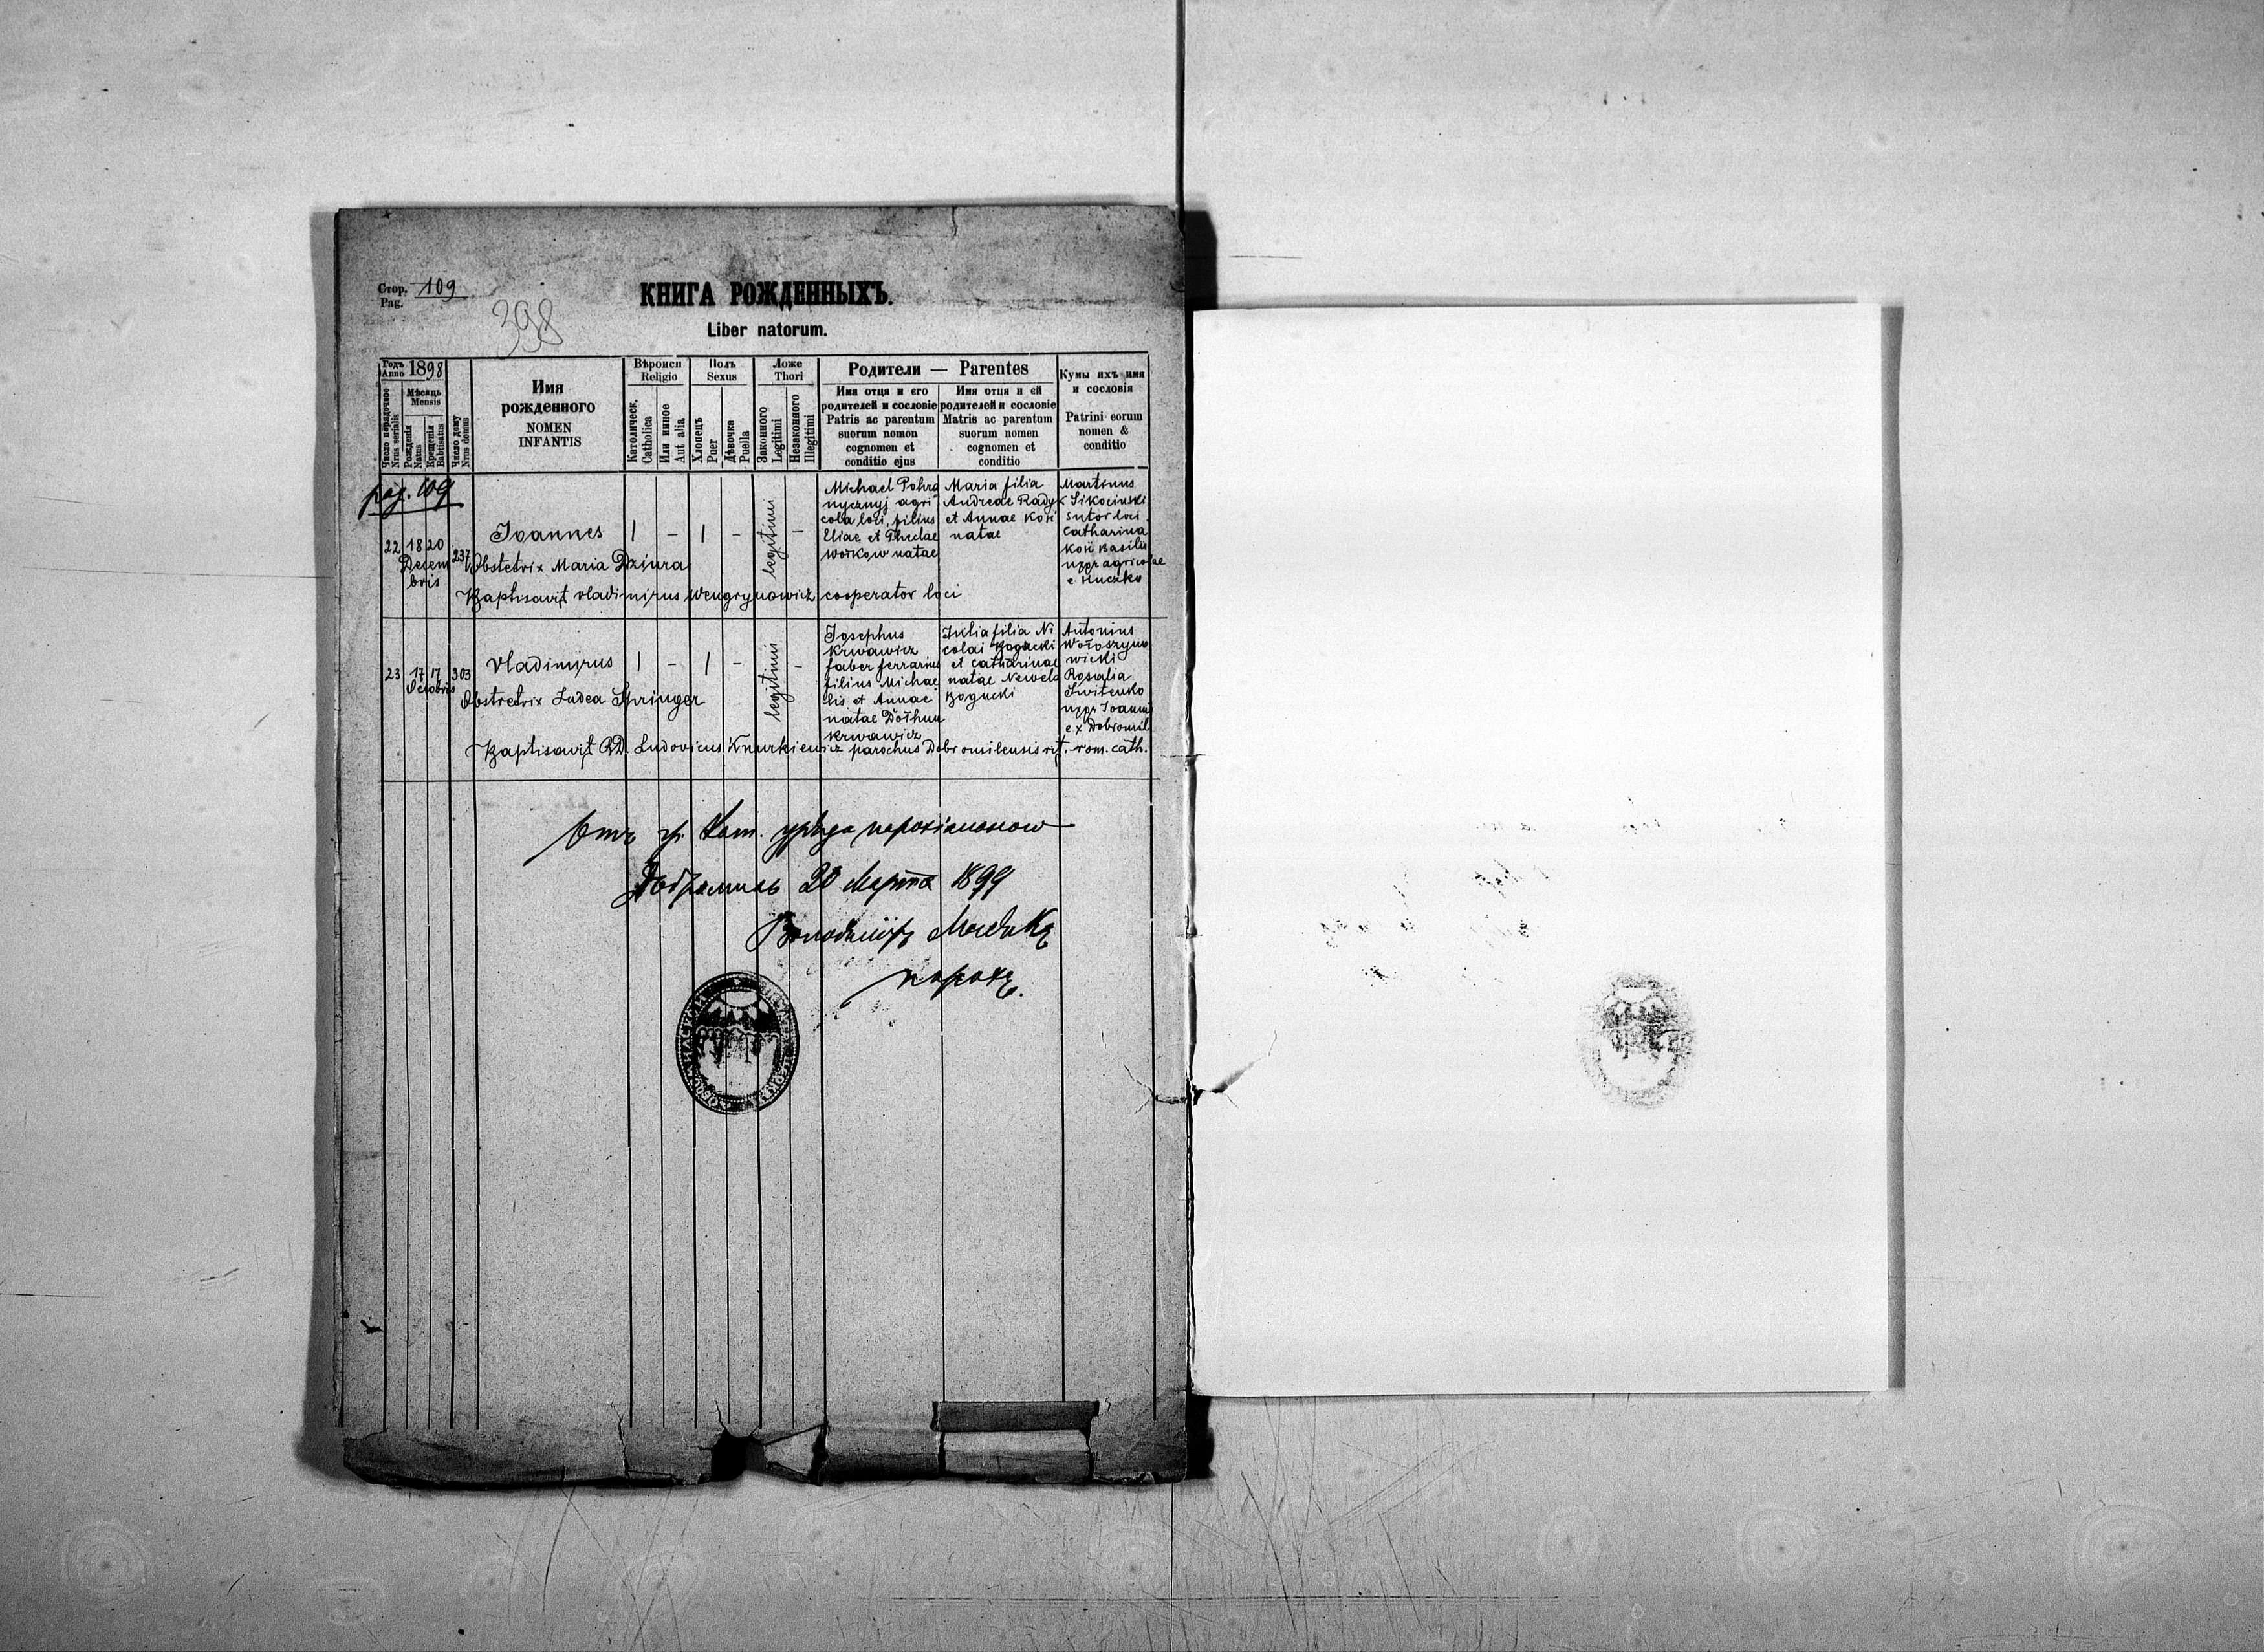 Стор. 109
Pag.
398
КНИГА РОЖДЕННЫХЪ.
Liber natorum.
Годъ 1898
Anno
Мѣсяць
Mensis
Число порядочное
Nrus serialis
Рожденія
Natus
Крещенія
Babtisatus
Число дому
Nrus domus
Имя
рожденного
NOMEN
INFANTIS
Вѣроисп
Religio
Католическ.
Catholica
Или инное
Aut alia
Полъ
Sexus
Хлопецъ
Puer
Дѣвочка
Puella
Ложе
Thori
Законного
Legitimi
Незаконного
Illegitimi
Родители — Parentes
Имя отця и его
родителей и сословіе
Patris ac parentum
suorum nomen
cognomen et
conditio ejus
Имя отця и ей
родителей и сословіе
Matris ac parentum
suorum nomen
cognomen et
conditio
Кумы ихъ имя
и сословія
Patrini eorum
nomen &
conditio
pag. 109
22
18 20
Decem
bris
237
Ioannes
1 - 1 -
legitimi
-
Obstetrix Maria Dziura
Baptisavit Vladimirus Wengrynowicz cooperator loci
Michael Pohra
nycznyj agri
cola loci, filius
Eliae et Theclae
Workow natae
Maria filia
Andreae Radyk
et Annae Kos
natae
Martinus
Sikocinski
sutor loci
Catharina
Basilii
uxor agricolae
e Huczko
23
17 17
Octobris
303
Vladimyrus
1 - 1 -
legitimi
-
Obstretrix Ludea Springer
Josephus
Krwawicz
faber ferrarius
filius Michae
lis et Annae
natae Dołhun
Krwawicz
filia Ni
colai Bogucki
et Catharinae
natae
Bogucki
Antonius
Wołoszyno
wicki
Rosalia
Switenko
uxor Joannis
ex Dobromil
Baptisavit RD. Ludovicus Knurkiewicz parochus Dobromilensis rit. rom. cath.
Отъ гр. Кат. уряда парохіального
Добромиль 20 Марта 1899
парохъ.